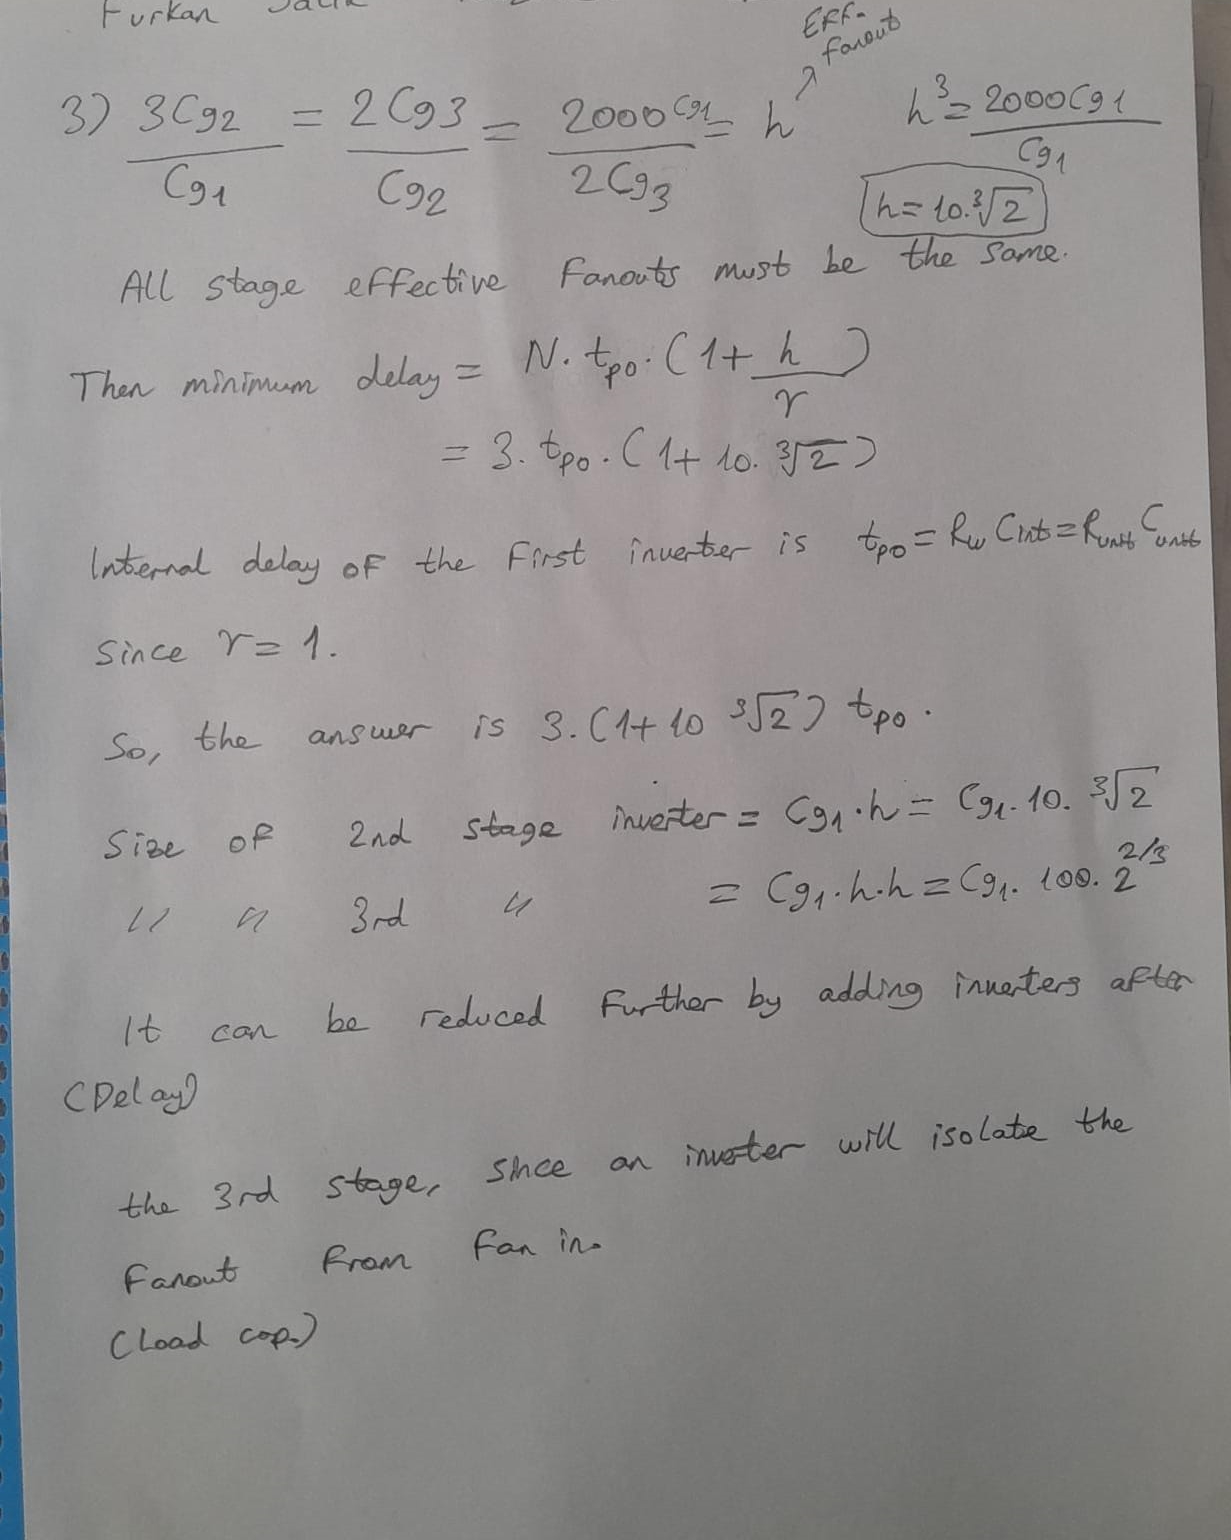 Furkan
Eff.
fanout
3) 3Cg2/Cg1 = 2Cg3/Cg2 = 2000Cg1/2Cg3 = h
h³ = 2000Cg1/Cg1
h = 10.∛2
All stage effective Fanouts must be the same.
Then minimum delay = N. tpo. (1 + h/γ)
= 3. tpo. (1 + 10. ∛2)
Internal delay of the First inverter is tpo = Rw Cint = Runit Cunit
Since γ = 1.
So, the answer is 3. (1 + 10 ∛2) tpo.
Size of 2nd stage inverter = Cg1.h = Cg1. 10. ∛2
" " 3rd " = Cg1.h.h = Cg1. 100. 2^2/3
It can be reduced Further by adding inverters after
(Delay)
the 3rd stage, since an inverter will isolate the
Fanout From Fan in.
(Load cap.)